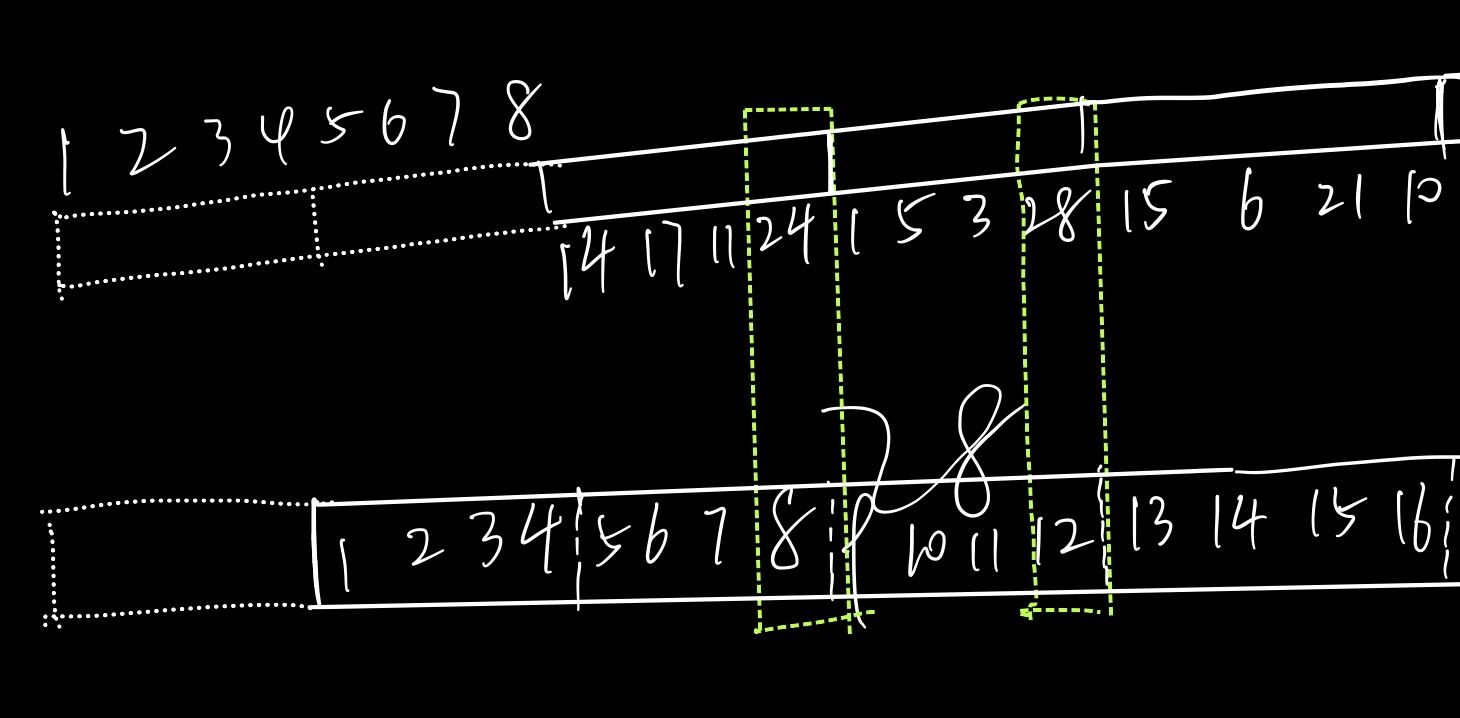 1 2 3 4 5 6 7 8
14 17 11 24 1 5 3 28 15 6 21 10
28
1 2 3 4 5 6 7 8 9 10 11 12 13 14 15 16